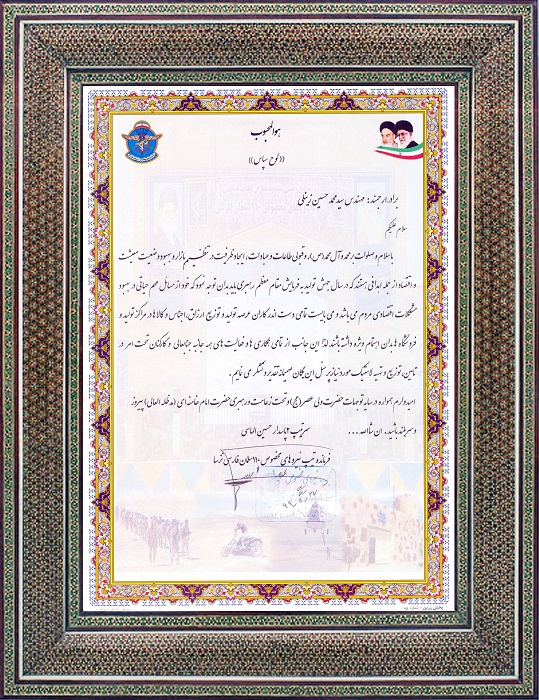 هوالمحبوب
((لوح سپاس))
برادر ارجمند: مهندس سید محمد حسین زینلی
سلام علیکم
با سلام و صلوات بر محمد و آل محمد (ص)، و قبولی طاعات و عبادات، ایجاد ظرفیت در تنظیم بازار و بهبود وضعیت معیشت
و اقتصاد از جمله اهدافی هستند که در سال جهش تولید به فرمایش مقام معظم رهبری باید بدان توجه نمود که خود از مسائل مهم حیاتی در بهبود
مشکلات اقتصادی مردم می باشد و می بایست تمامی دست اندرکاران عرصه تولید و توزیع ارزاق، اجناس و کالاها در مراکز تولید و
فروشگاه ها بدان اهتمام ویژه داشته باشند لذا این جانب از تمامی همکاری ها و فعالیت های همه جانبه جنابعالی و کارکنان تحت امر در
تامین، توزیع و تهیه لاستیک مورد نیاز پرسنل این یگان صمیمانه تقدیر و تشکر می نمایم.
امیدوارم همواره در سایه توجهات حضرت ولی عصر (عج) و تحت زعامت و رهبری حضرت امام خامنه ای (مدظله العالی) پیروز
و سربلند باشید. ان شاالله ...
سرتیپ ۲ پاسدار حسین الماسی
فرمانده تیپ نیروهای مخصوص ۱۱۰ سلمان فارسی نزسا